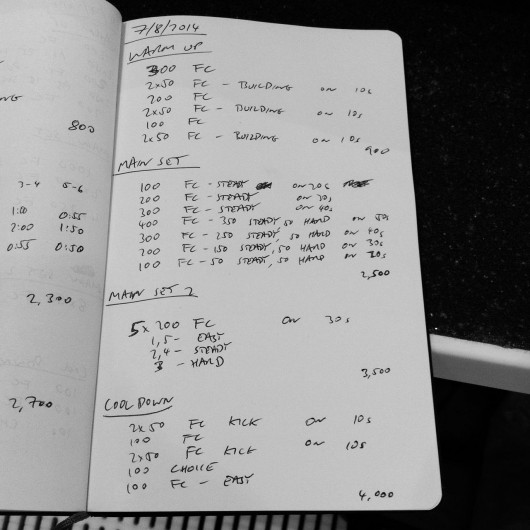 NG
800
3-4 5-6
1:00 0:55
2:00 1:50
0:55 0:50
2,300
2,700
7/8/2014
WARM UP
300 FC
2x50 FC - BUILDING ON 10s
200 FC
2x50 FC - BUILDING ON 10s
100 FC
2x50 FC - BUILDING ON 10s
900
MAIN SET
100 FC - STEADY ON 20s
200 FC - STEADY ON 30s
300 FC - STEADY ON 40s
400 FC - 350 STEADY, 50 HARD ON 50s
300 FC - 250 STEADY, 50 HARD ON 40s
200 FC - 150 STEADY, 50 HARD ON 30s
100 FC - 50 STEADY, 50 HARD ON 20s
2,500
MAIN SET 2
5x200 FC ON 30s
1,5 - EASY
2,4 - STEADY
3 - HARD
3,500
COOL DOWN
2x50 FC KICK ON 10s
100 FC
2x50 FC KICK ON 10s
100 CHOICE
100 FC - EASY
4,000